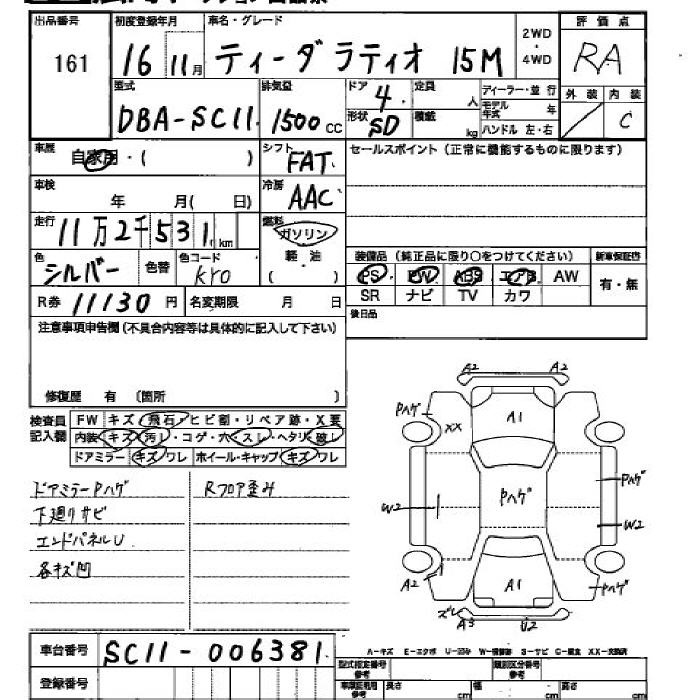 出品番号 初度登録年月 車名・グレード 2WD・4WD 評価点
161 16 11月 ティーダ ラティオ 15M RA
型式 排気量 ドア 4 定員 人 ディーラー・並行 外装 内装
DBA-SC11 1500cc 形状 SD 積載 kg モデル年式 年 / C
ハンドル 左・右
車歴 自家用・( ) シフト FAT セールスポイント(正常に機能するものに限ります)
車検 年 月( 日) 冷房 AAC
走行 11万2千531km 燃料 ガソリン
軽・油
( )
色 シルバー 色替 色コード KY0
装備品(純正品に限り○をつけてください) 新車保証書
PS PW ABS エアB AW 有・無
SR ナビ TV カワ
R券 11130円 名変期限 月 日
後日品
注意事項申告欄(不具合内容等は具体的に記入して下さい)
修復歴 有 〔箇所 〕
検査員記入欄 FW キズ・飛石・ヒビ割・リペア跡・X要
内装・キズ・汚し・コゲ・穴・スレ・ヘタリ・破し
ドアミラー キズ・ワレ ホイール・キャップ キズ・ワレ
ドアミラーPハゲ Rフロア歪み
下廻りサビ
エンドパネルU
各キズ凹
A2 A2
Pハゲ
XX
A1
Pハゲ
Pハゲ
W2
W2
A2
A1
Pハゲ
ズレ
A3 U2
A-キズ E-エクボ U-凹み W-補修跡 S-サビ C-腐食 XX-交換済
車台番号 SC11-006381
型式指定番号 参考 類別区分番号 参考
登録番号
車庫証明用 参考 長さ cm 幅 cm 高さ cm